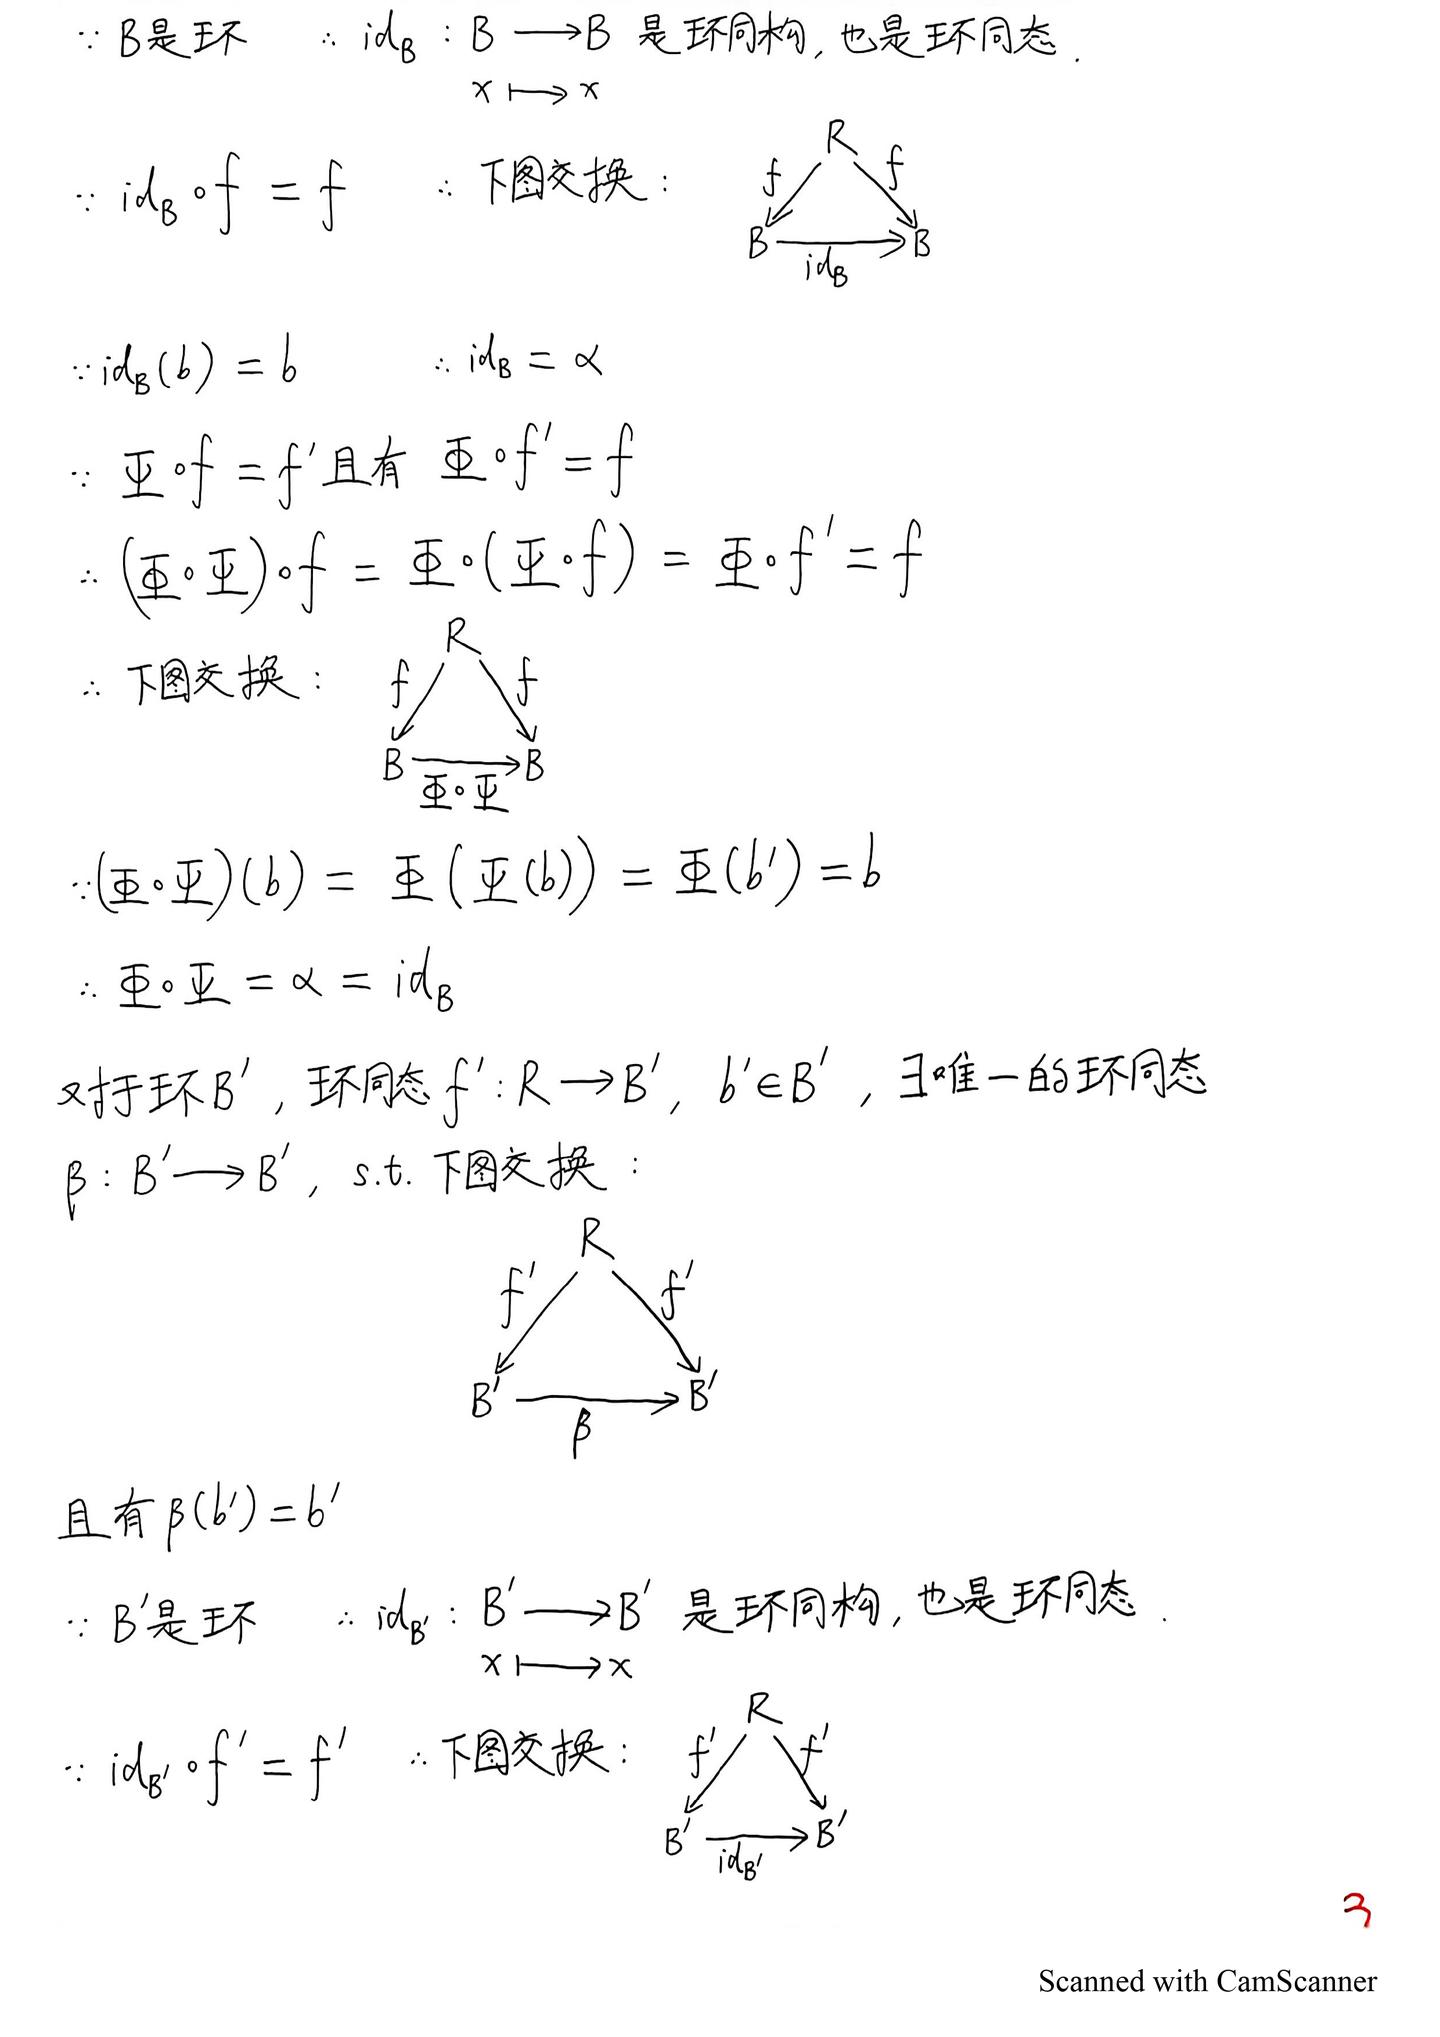 ∵ B是环 ∴ id_B : B ⟶ B 是环同构, 也是环同态.
x ⟼ x
∵ id_B∘f = f ∴ 下图交换:
R
f f
B B
id_B
∵ id_B(b) = b ∴ id_B = α
∵ Ψ∘f = f′ 且有 Φ∘f′ = f
∴ (Φ∘Ψ)∘f = Φ∘(Ψ∘f) = Φ∘f′ = f
R
∴ 下图交换: f f
B B
Φ∘Ψ
∵ (Φ∘Ψ)(b) = Φ(Ψ(b)) = Φ(b′) = b
∴ Φ∘Ψ = α = id_B
又对于环B′, 环同态 f′: R ⟶ B′, b′∈B′, ∃唯一的环同态
β: B′ ⟶ B′, s.t. 下图交换:
R
f′ f′
B′ B′
β
且有 β(b′) = b′
∵ B′是环 ∴ id_B′ : B′ ⟶ B′ 是环同构, 也是环同态.
x ⟼ x
R
∵ id_B′∘f′ = f′ ∴ 下图交换: f′ f′
B′ B′
id_B′
3
Scanned with CamScanner